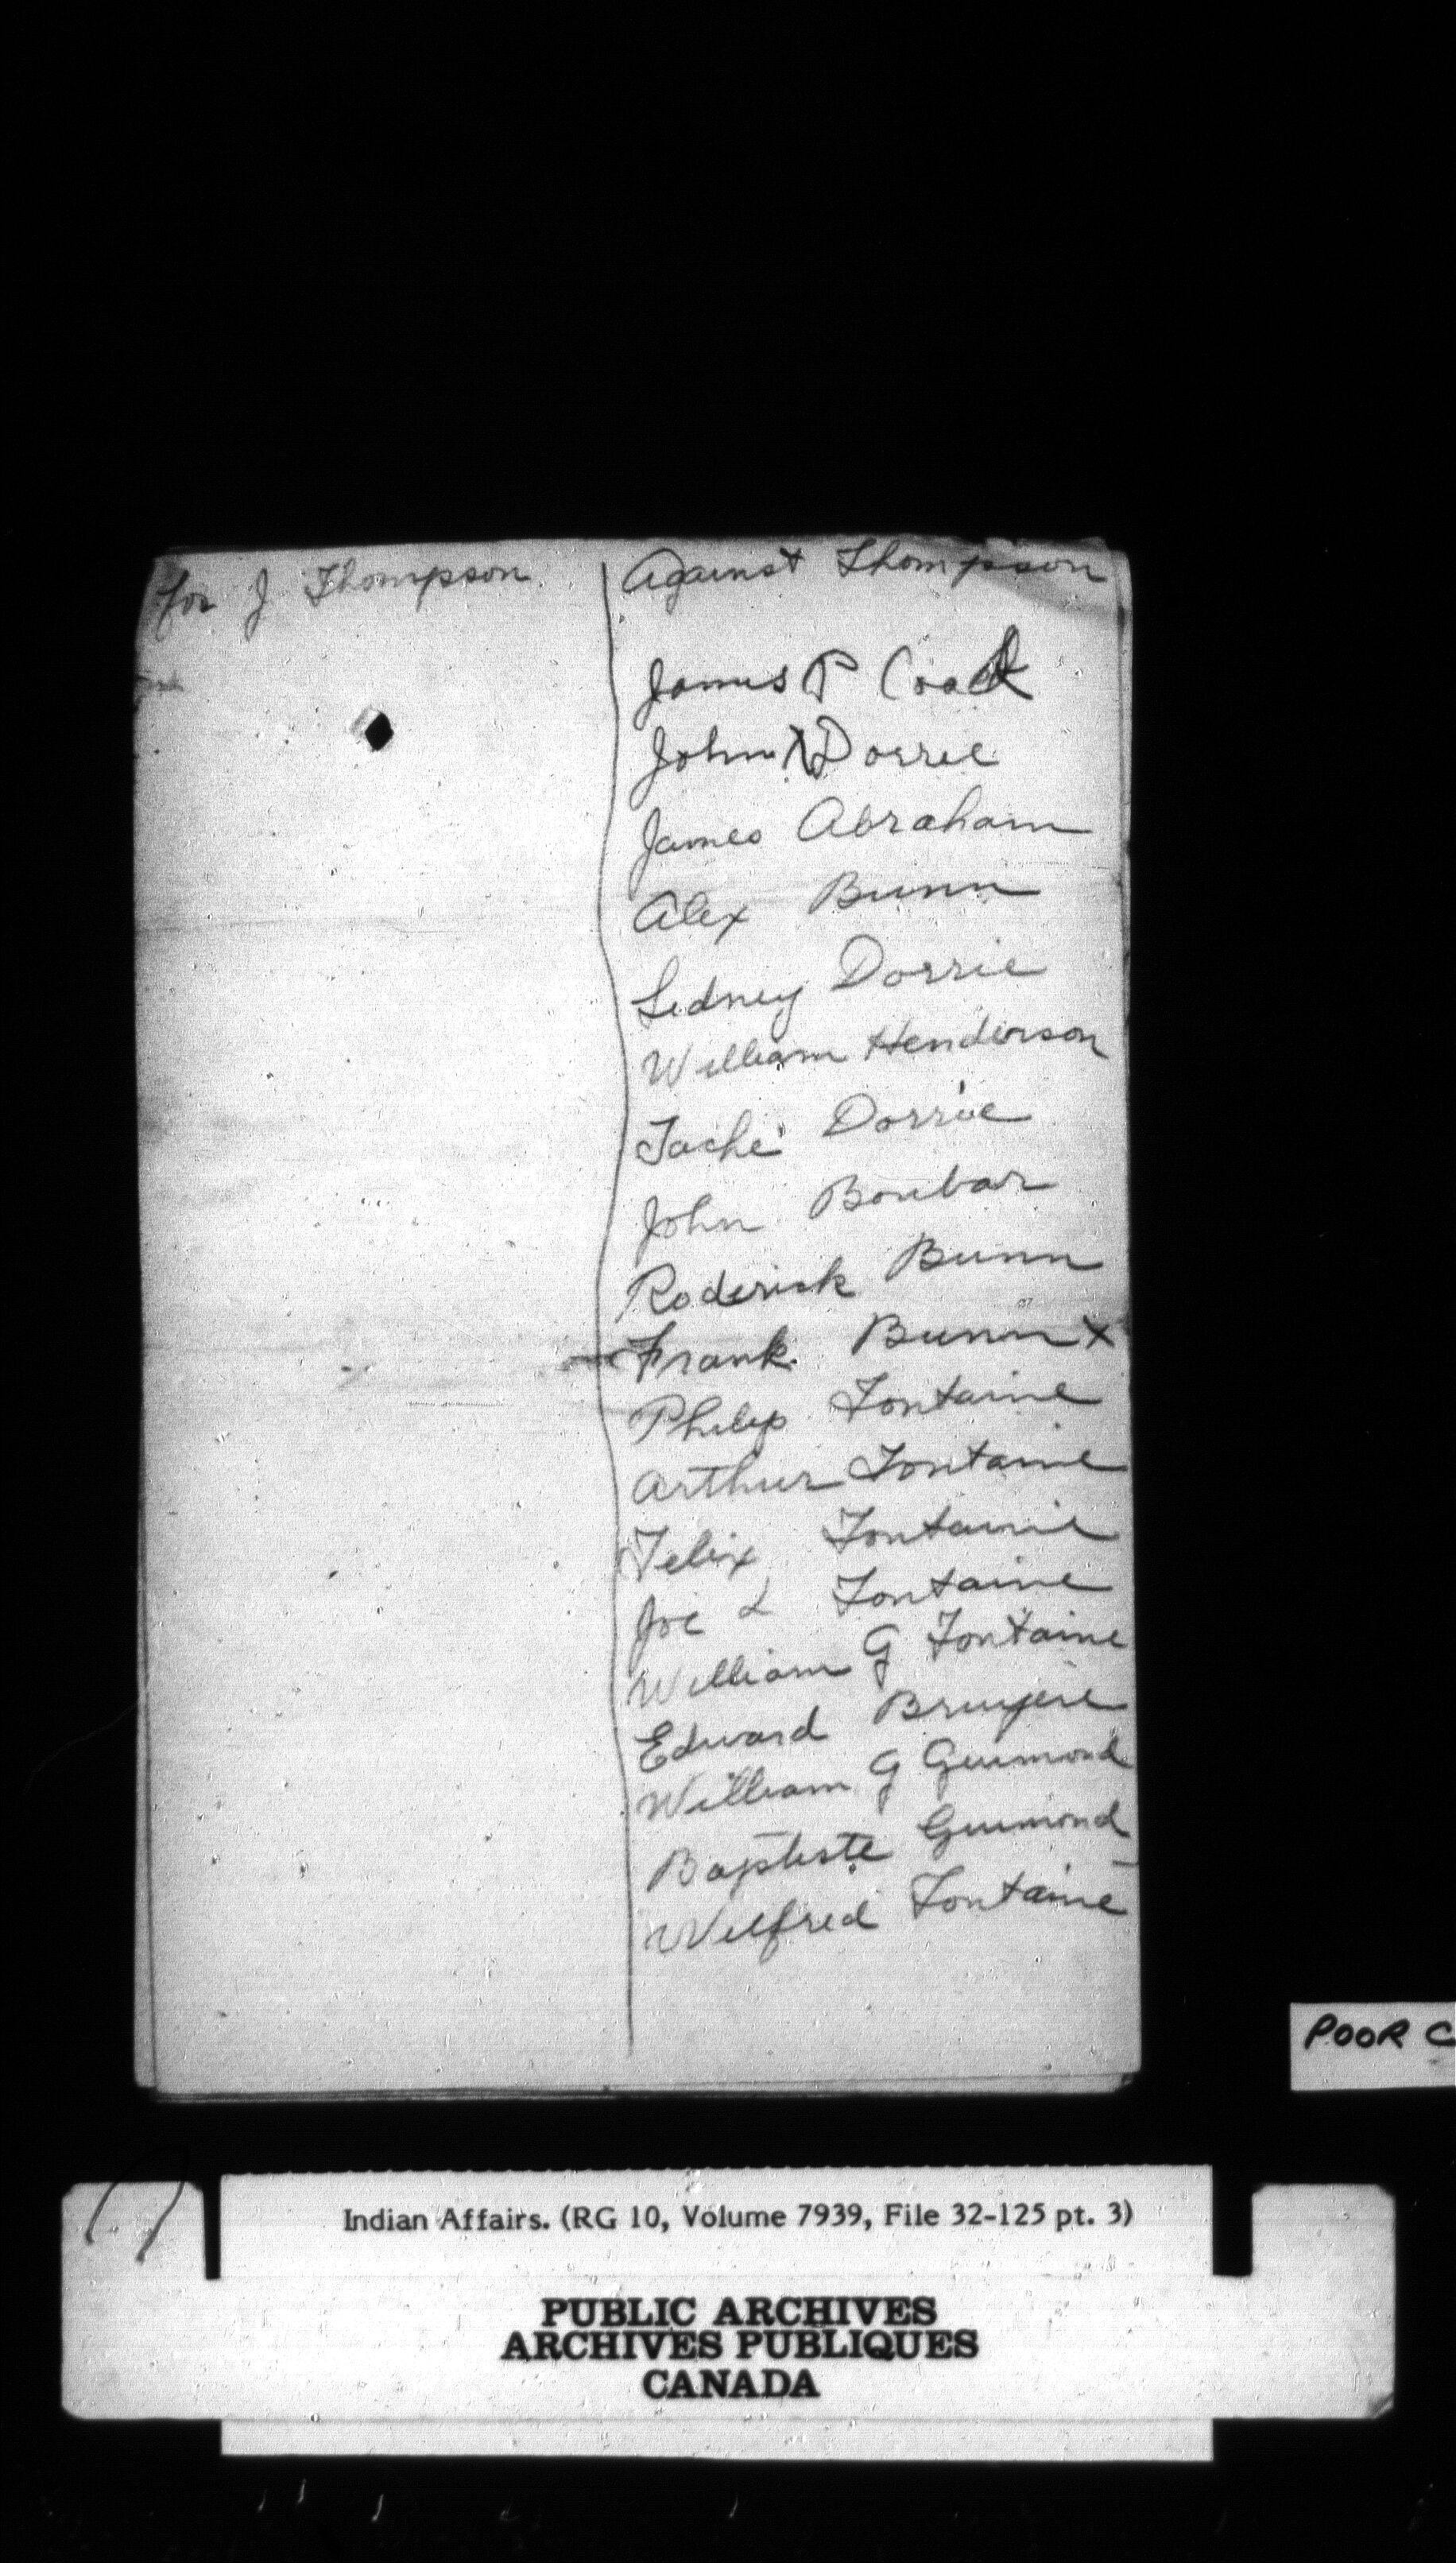 for J Thompson
Against Thompson
James P
John X Dorrie
James Abraham
Alex Bunn
Sedney Dorrie
William Henderson
Tache Dorrie
John Boubar
Roderick Bunn
Frank Bunn X
Philip Fontaine
Arthur Fontaine
Felix Fontaine
Joe L Fontaine
William G Fontaine
Edward Bruyere
William G Guimond
Baptiste Guimond
Wilfred Fontaine
POOR C
Indian Affairs. (RG 10, Volume 7939, File 32-125 pt. 3)
PUBLIC ARCHIVES
ARCHIVES PUBLIQUES
CANADA